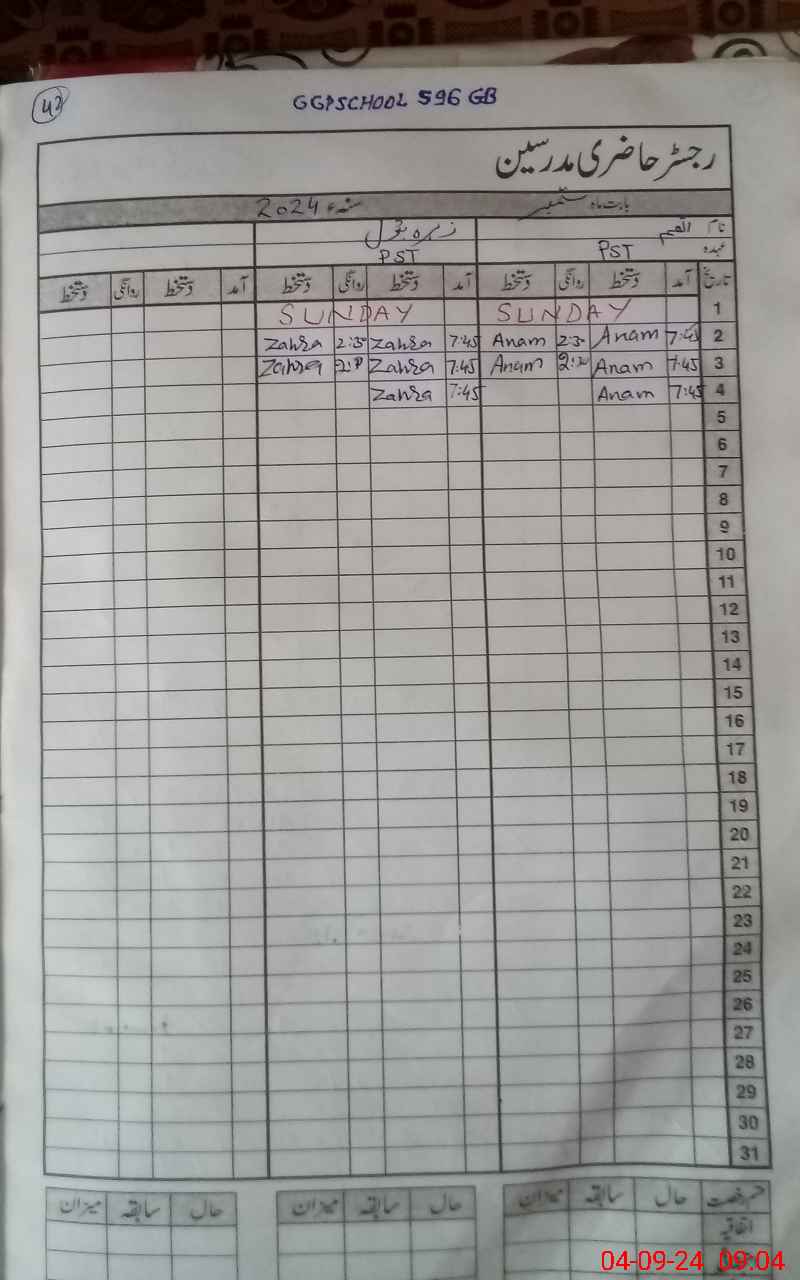 42
GGPSCHOOL 596 GB
رجسٹر حاضری مدرسین
بابت ماہ ستمبر سنہء 2024
نام انعم زہرہ بتول
عہدہ PST PST
تاریخ آمد دستخط روانگی دستخط آمد دستخط روانگی دستخط آمد دستخط روانگی دستخط
1 SUNDAY SUNDAY
2 7:45 Anam 2:30 Anam 7:45 Zahra 2:30 Zahra
3 7:45 Anam Anam 7:45 Zahra Zahra
4 7:45 Anam 7:45 Zahra
5
6
7
8
9
10
11
12
13
14
15
16
17
18
19
20
21
22
23
24
25
26
27
28
29
30
31
قسم رخصت حال سابقہ میزان حال سابقہ میزان حال سابقہ میزان
اتفاقیہ
04-09-24 09:04